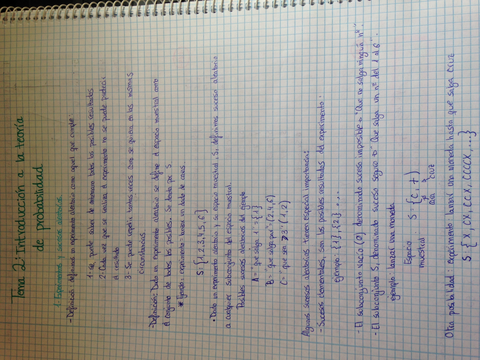 Tema 2: Introducción a la teoría
de probabilidad
1. Experimentos y sucesos aleatorios
- Definición: definimos experimento aleatorio como aquel que cumple
1- Se puede saber de antemano todos los posibles resultados
2- Cada vez que se realiza el experimento no se puede predecir
el resultado
3- Se puede repetir tantas veces como se quiera en las mismas
circunstancias
- Definición: Dado un experimento aleatorio se define el espacio muestral como
el conjunto de todos los posibles. Se denota por S.
* Ejemplo experimento: lanzar un dado de caras
S {1,2,3,4,5,6}
- Dado un experimento aleatorio y su espacio muestral S, definimos suceso aleatorio
a cualquier subconjunto del espacio muestral.
Posibles sucesos aleatorios del ejemplo
A = "que salga 1" {1}
B = que salga par {2,4,6}
C = que sea {1,2}
Algunos sucesos aleatorios tienen especial importancia:
- Sucesos elementales, son los posibles resultados del experimento.
ejemplo: {1}, {2}, ...
- El subconjunto vacío (Ø) denominado suceso imposible "Que no salga ningún nº"
- El subconjunto S, denominado suceso seguro "Que salga un nº del 1 al 6"
ejemplo: lanzar una moneda
Espacio
muestral
S: {C, +}
CARA CRUZ
Otra posibilidad experimento lanzar una moneda hasta que salga CRUZ
S {X, CX, CCX, CCCX, ...}